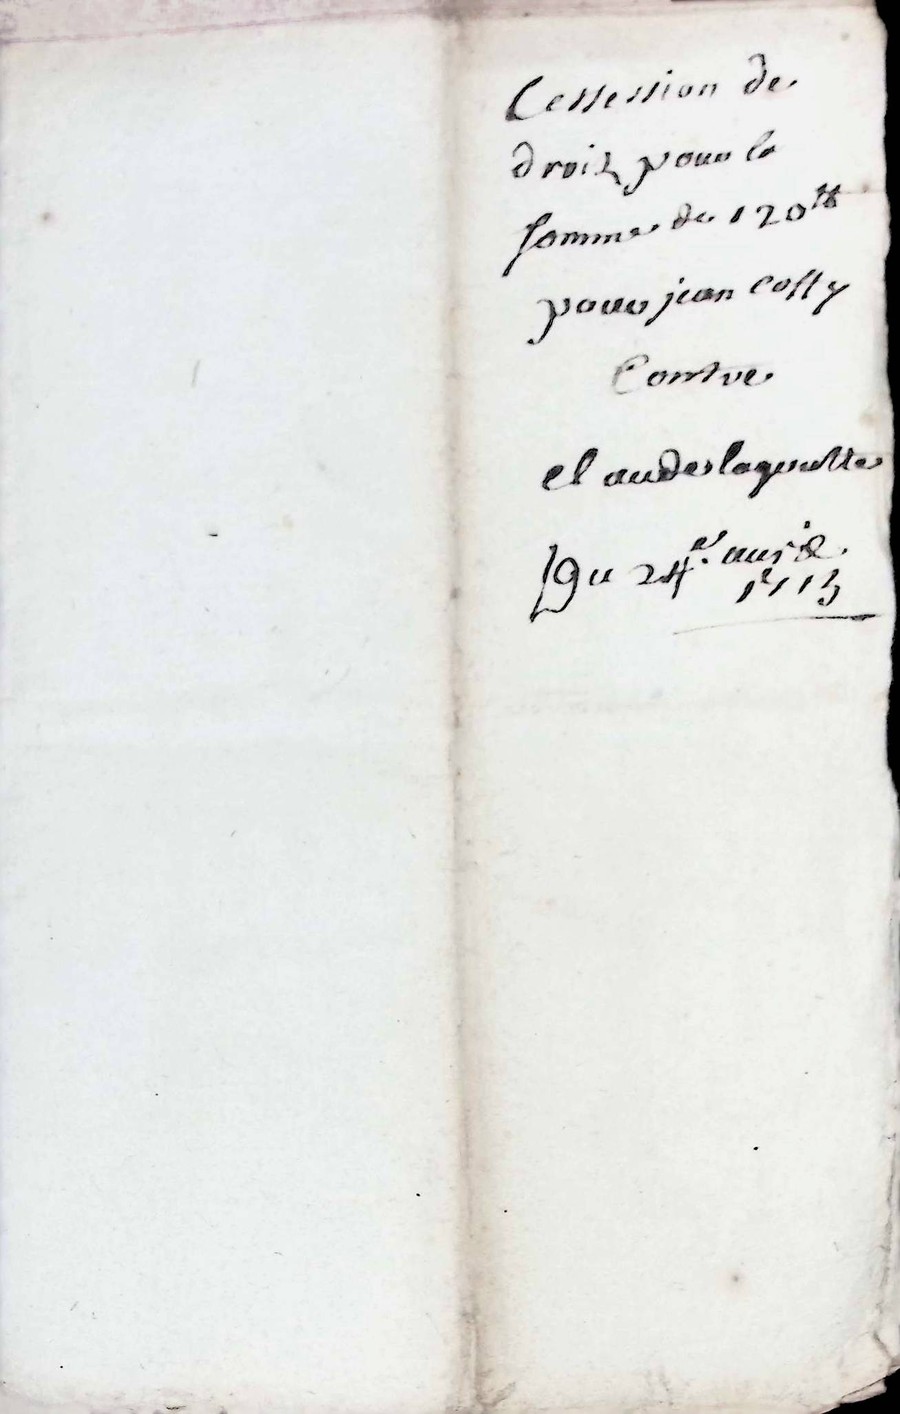 Cessession de
droit pour la
somme de 120tt
pour jean Cossy
Contre
Claude laguutte
Du 24e